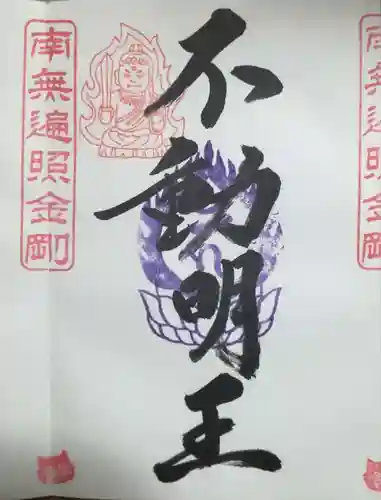 南無遍照金剛
不動明王
南無遍照金剛